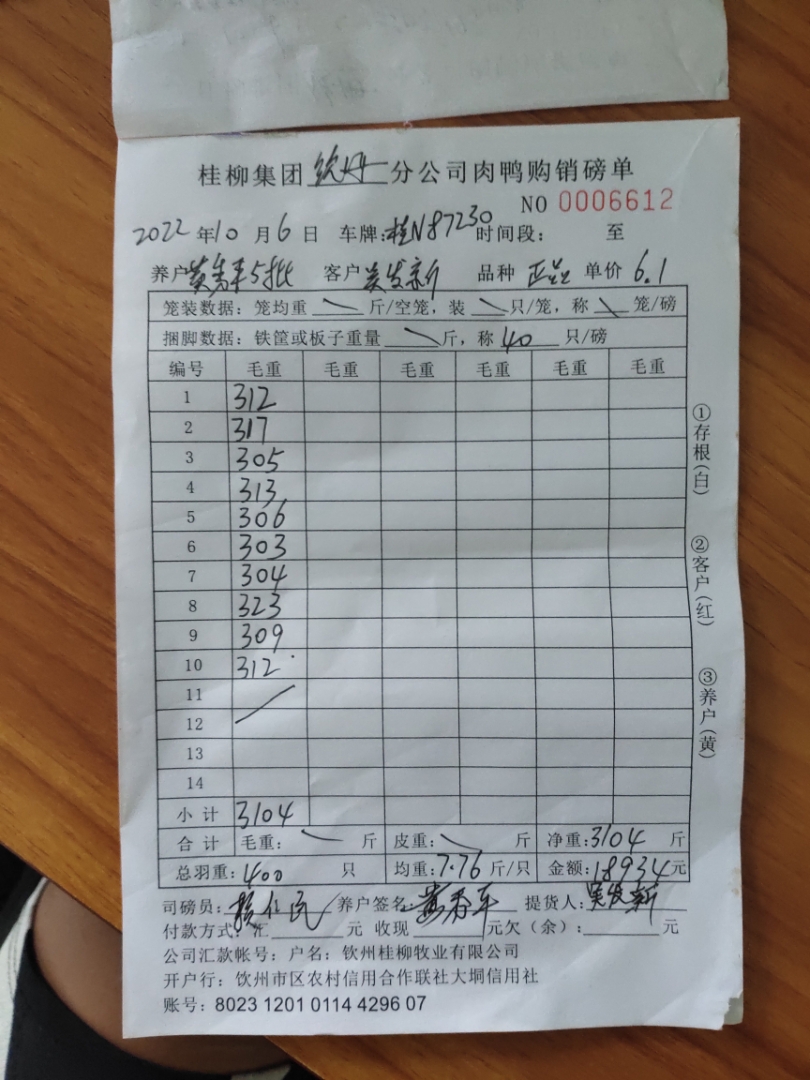 桂柳集团钦州分公司肉鸭购销磅单
NO 0006612
2022年10月6日 车牌:桂N87230 时间段: 至
养户黄春平5批 客户吴发新 品种 正品 单价 6.1
笼装数据: 笼均重 斤/空笼, 装 只/笼, 称 笼/磅
捆脚数据: 铁筐或板子重量 斤, 称 40 只/磅
编号 毛重 毛重 毛重 毛重 毛重 毛重
1 312
2 317
3 305
4 313
5 306
6 303
7 304
8 323
9 309
10 312
11
12
13
14
小计 3104
合计 毛重: 斤 皮重: 斤 净重:3104 斤
总羽重: 400 只 均重:7.76 斤/只 金额:18934元
司磅员: 养户签名: 黄春平 提货人: 吴发新
付款方式: 汇 元 收现 元欠(余): 元
公司汇款帐号: 户名: 钦州桂柳牧业有限公司
开户行: 钦州市区农村信用合作联社大垌信用社
账号: 8023 1201 0114 4296 07
①存根(白)
②客户(红)
③养户(黄)